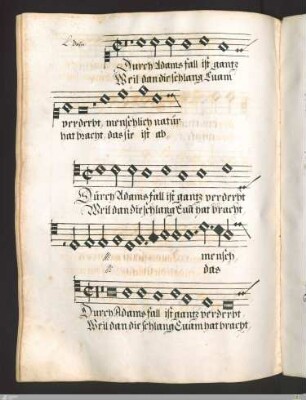 Durch Adams fall ist gantz
Weil dan die schlang Euam
verderbt, menschlich natur
hat bracht, das sie ist ab
Durch Adams fall ist gantz verderbt
Weil dan die schlang Euā hat bracht
mensch
das
Durch Adams fall ist gantz verderbt
Weil dan die schlang Euam hat bracht